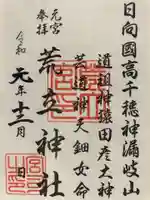 日向國高千穂神漏岐山
道祖神猿田彦大神
荒道神天鈿女命
元宮
奉拝
荒立神社
令和元年十二月 日